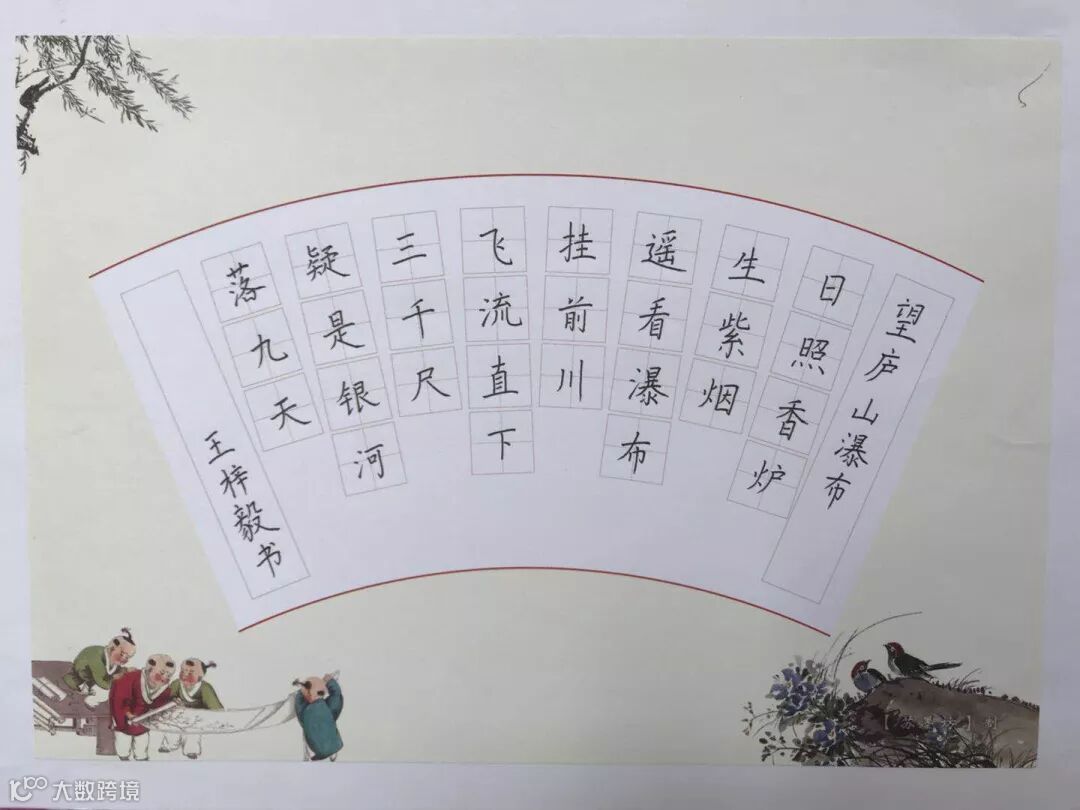 望庐山瀑布
日照香炉
生紫烟
遥看瀑布
挂前川
飞流直下
三千尺
疑是银河
落九天
王梓毅书
大数跨境